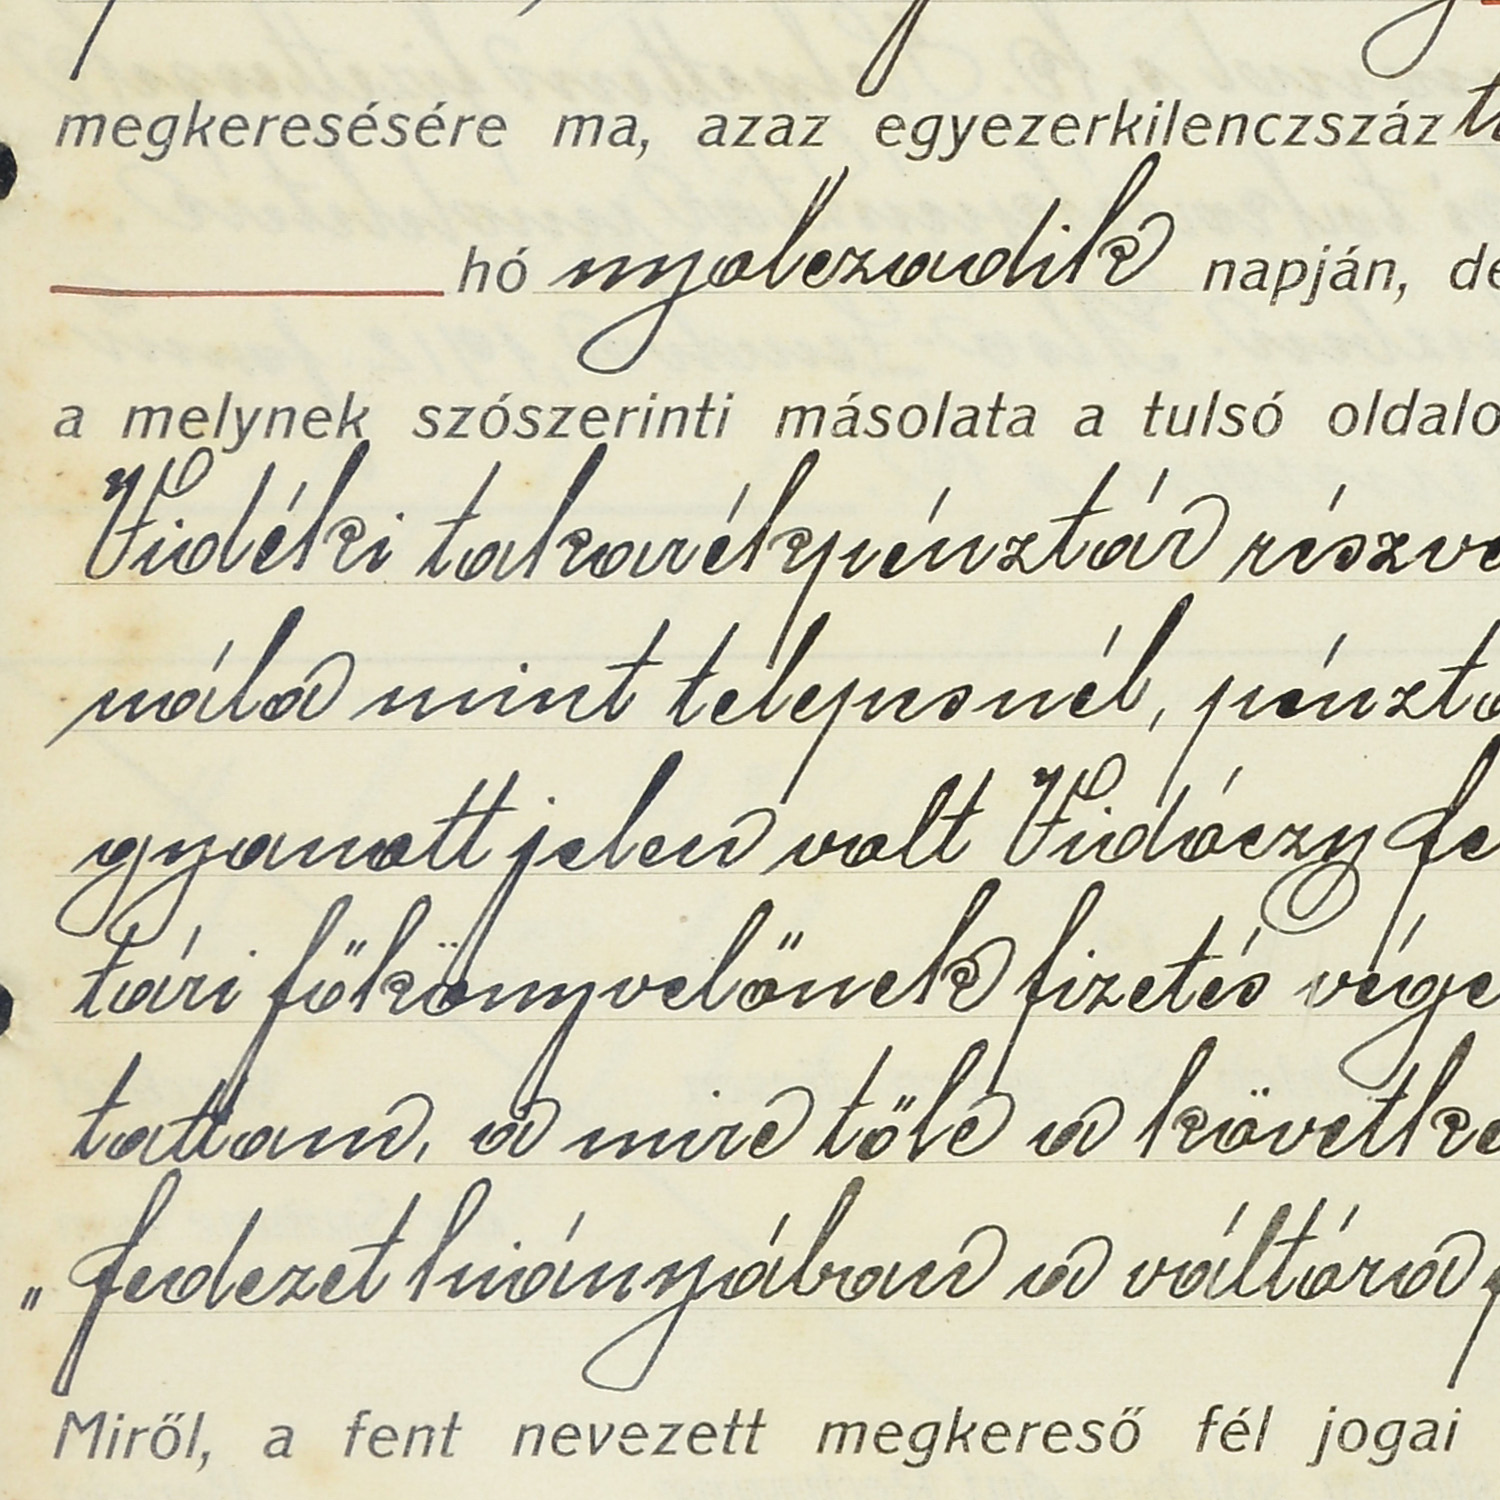 megkeresésére ma, azaz egyezerkilenczszáz
hó nyolczadik napján, de
a melynek szószerinti másolata a tulsó oldalo
Vidéki takarékpénztár részve
nála mint telepesnél, pénztá
gyanott jelen volt Vidóczy fe
tári főkönyvelőnek fizetés vége
tattam, a mire tőle a követke
„fedezet hiányában a váltóra f
Miről, a fent nevezett megkereső fél jogai